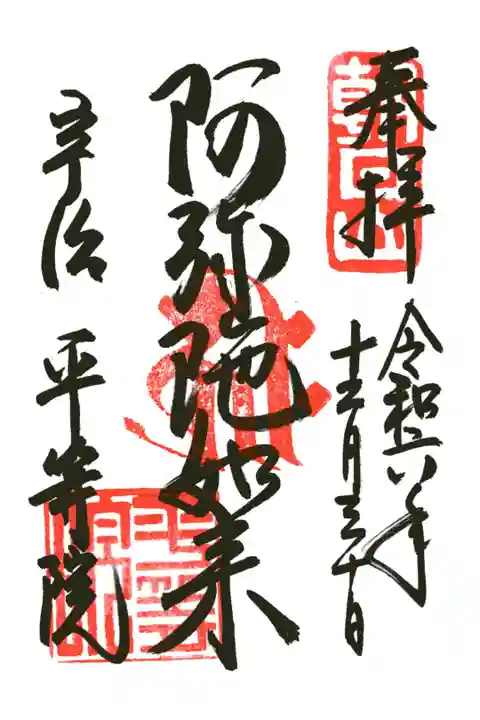 奉拝
朝日山
令和六年
十二月三十日
阿弥陀如来
宇治 平等院